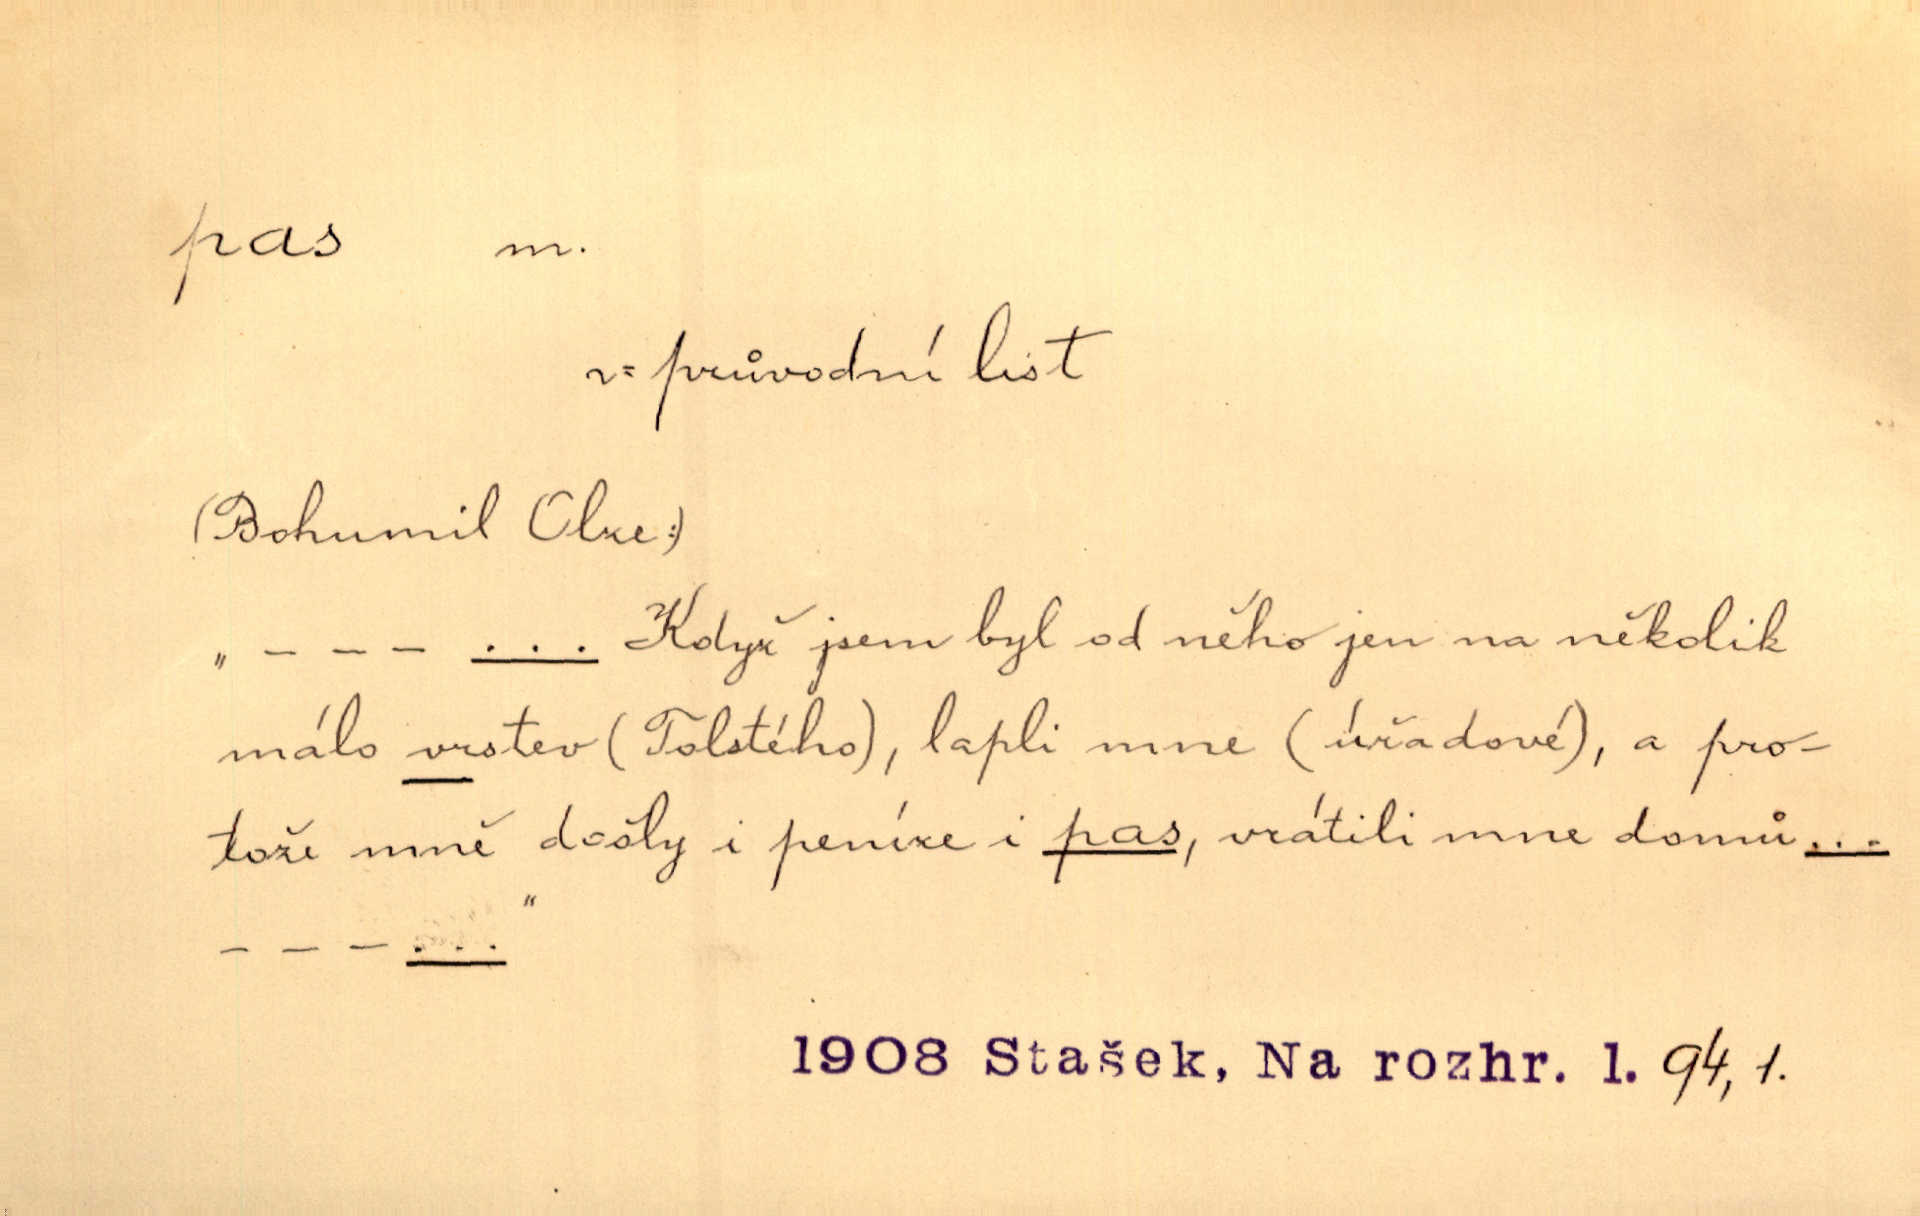 pas m.
= průvodní list
(Bohumil Olze:)
„ – – – ... Když jsem byl od něho jen na několik
málo vrstev (Tolstého), lapli mne (úřadové), a pro-
tože mně došly i peníze i pas, vrátili mne domů...
– – – ... “
1908 Stašek, Na rozhr. 1. 94, 1.